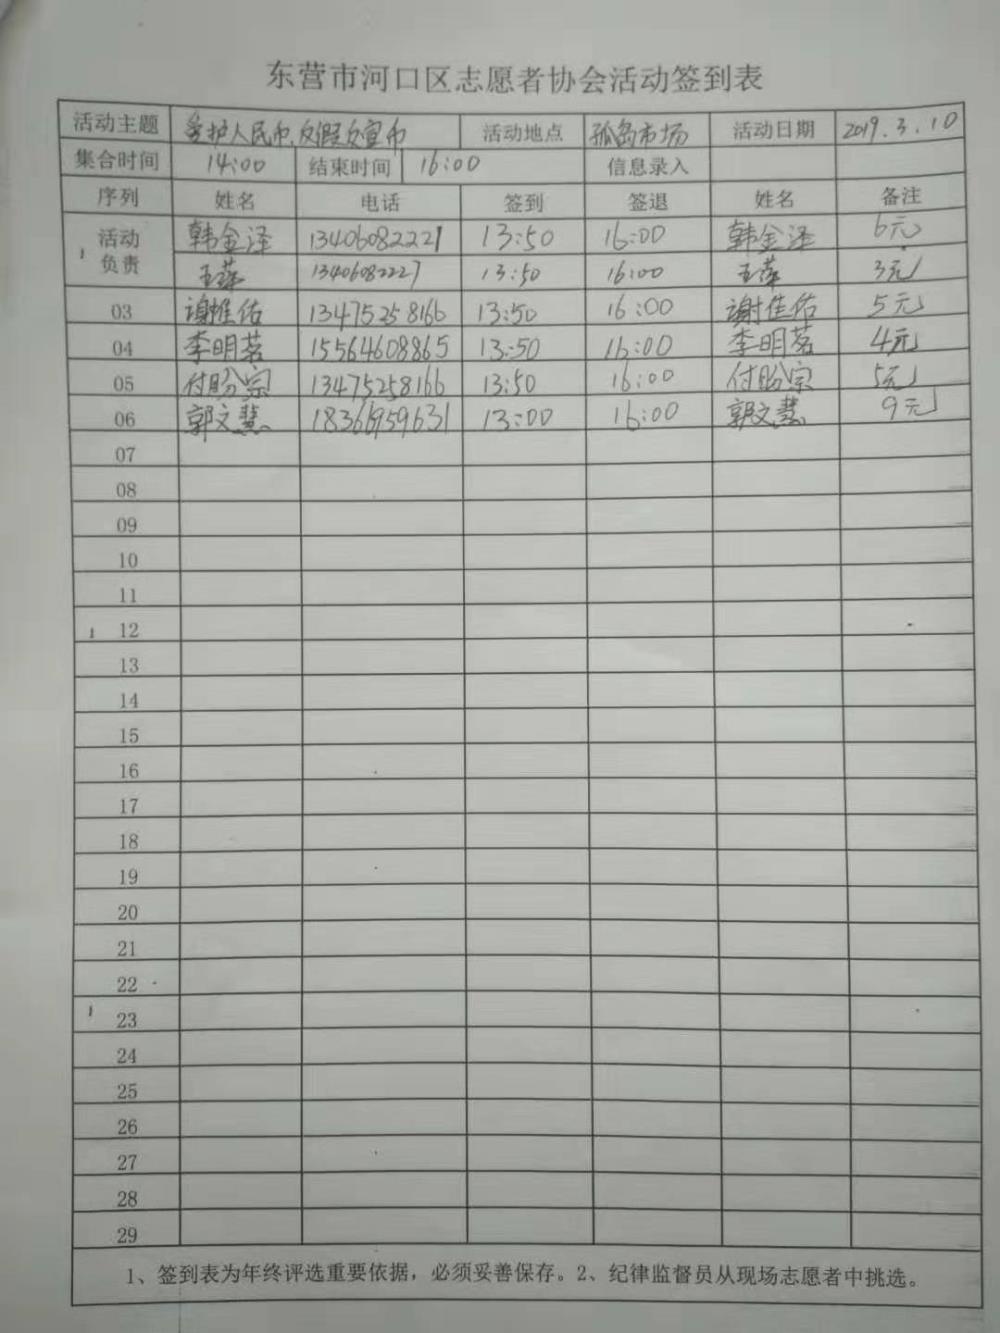 东营市河口区志愿者协会活动签到表
活动主题 爱护人民币,反假反宣币 活动地点 孤岛市场 活动日期 2019.3.10
集合时间 14:00 结束时间 16:00 信息录入
序列 姓名 电话 签到 签退 姓名 备注
活动负责 韩金泽 13406082221 13:50 16:00 韩金泽 6元
王萍 13406082227 13:50 16:00 王萍 3元
03 谢佳佑 13475258166 13:50 16:00 谢佳佑 5元
04 李明茗 15564608865 13:50 16:00 李明茗 4元
05 付盼宗 13475258166 13:50 16:00 付盼宗 5元
06 郭文慧 18366959631 13:00 16:00 郭文慧 9元
07
08
09
10
11
12
13
14
15
16
17
18
19
20
21
22
23
24
25
26
27
28
29
1、签到表为年终评选重要依据，必须妥善保存。2、纪律监督员从现场志愿者中挑选。